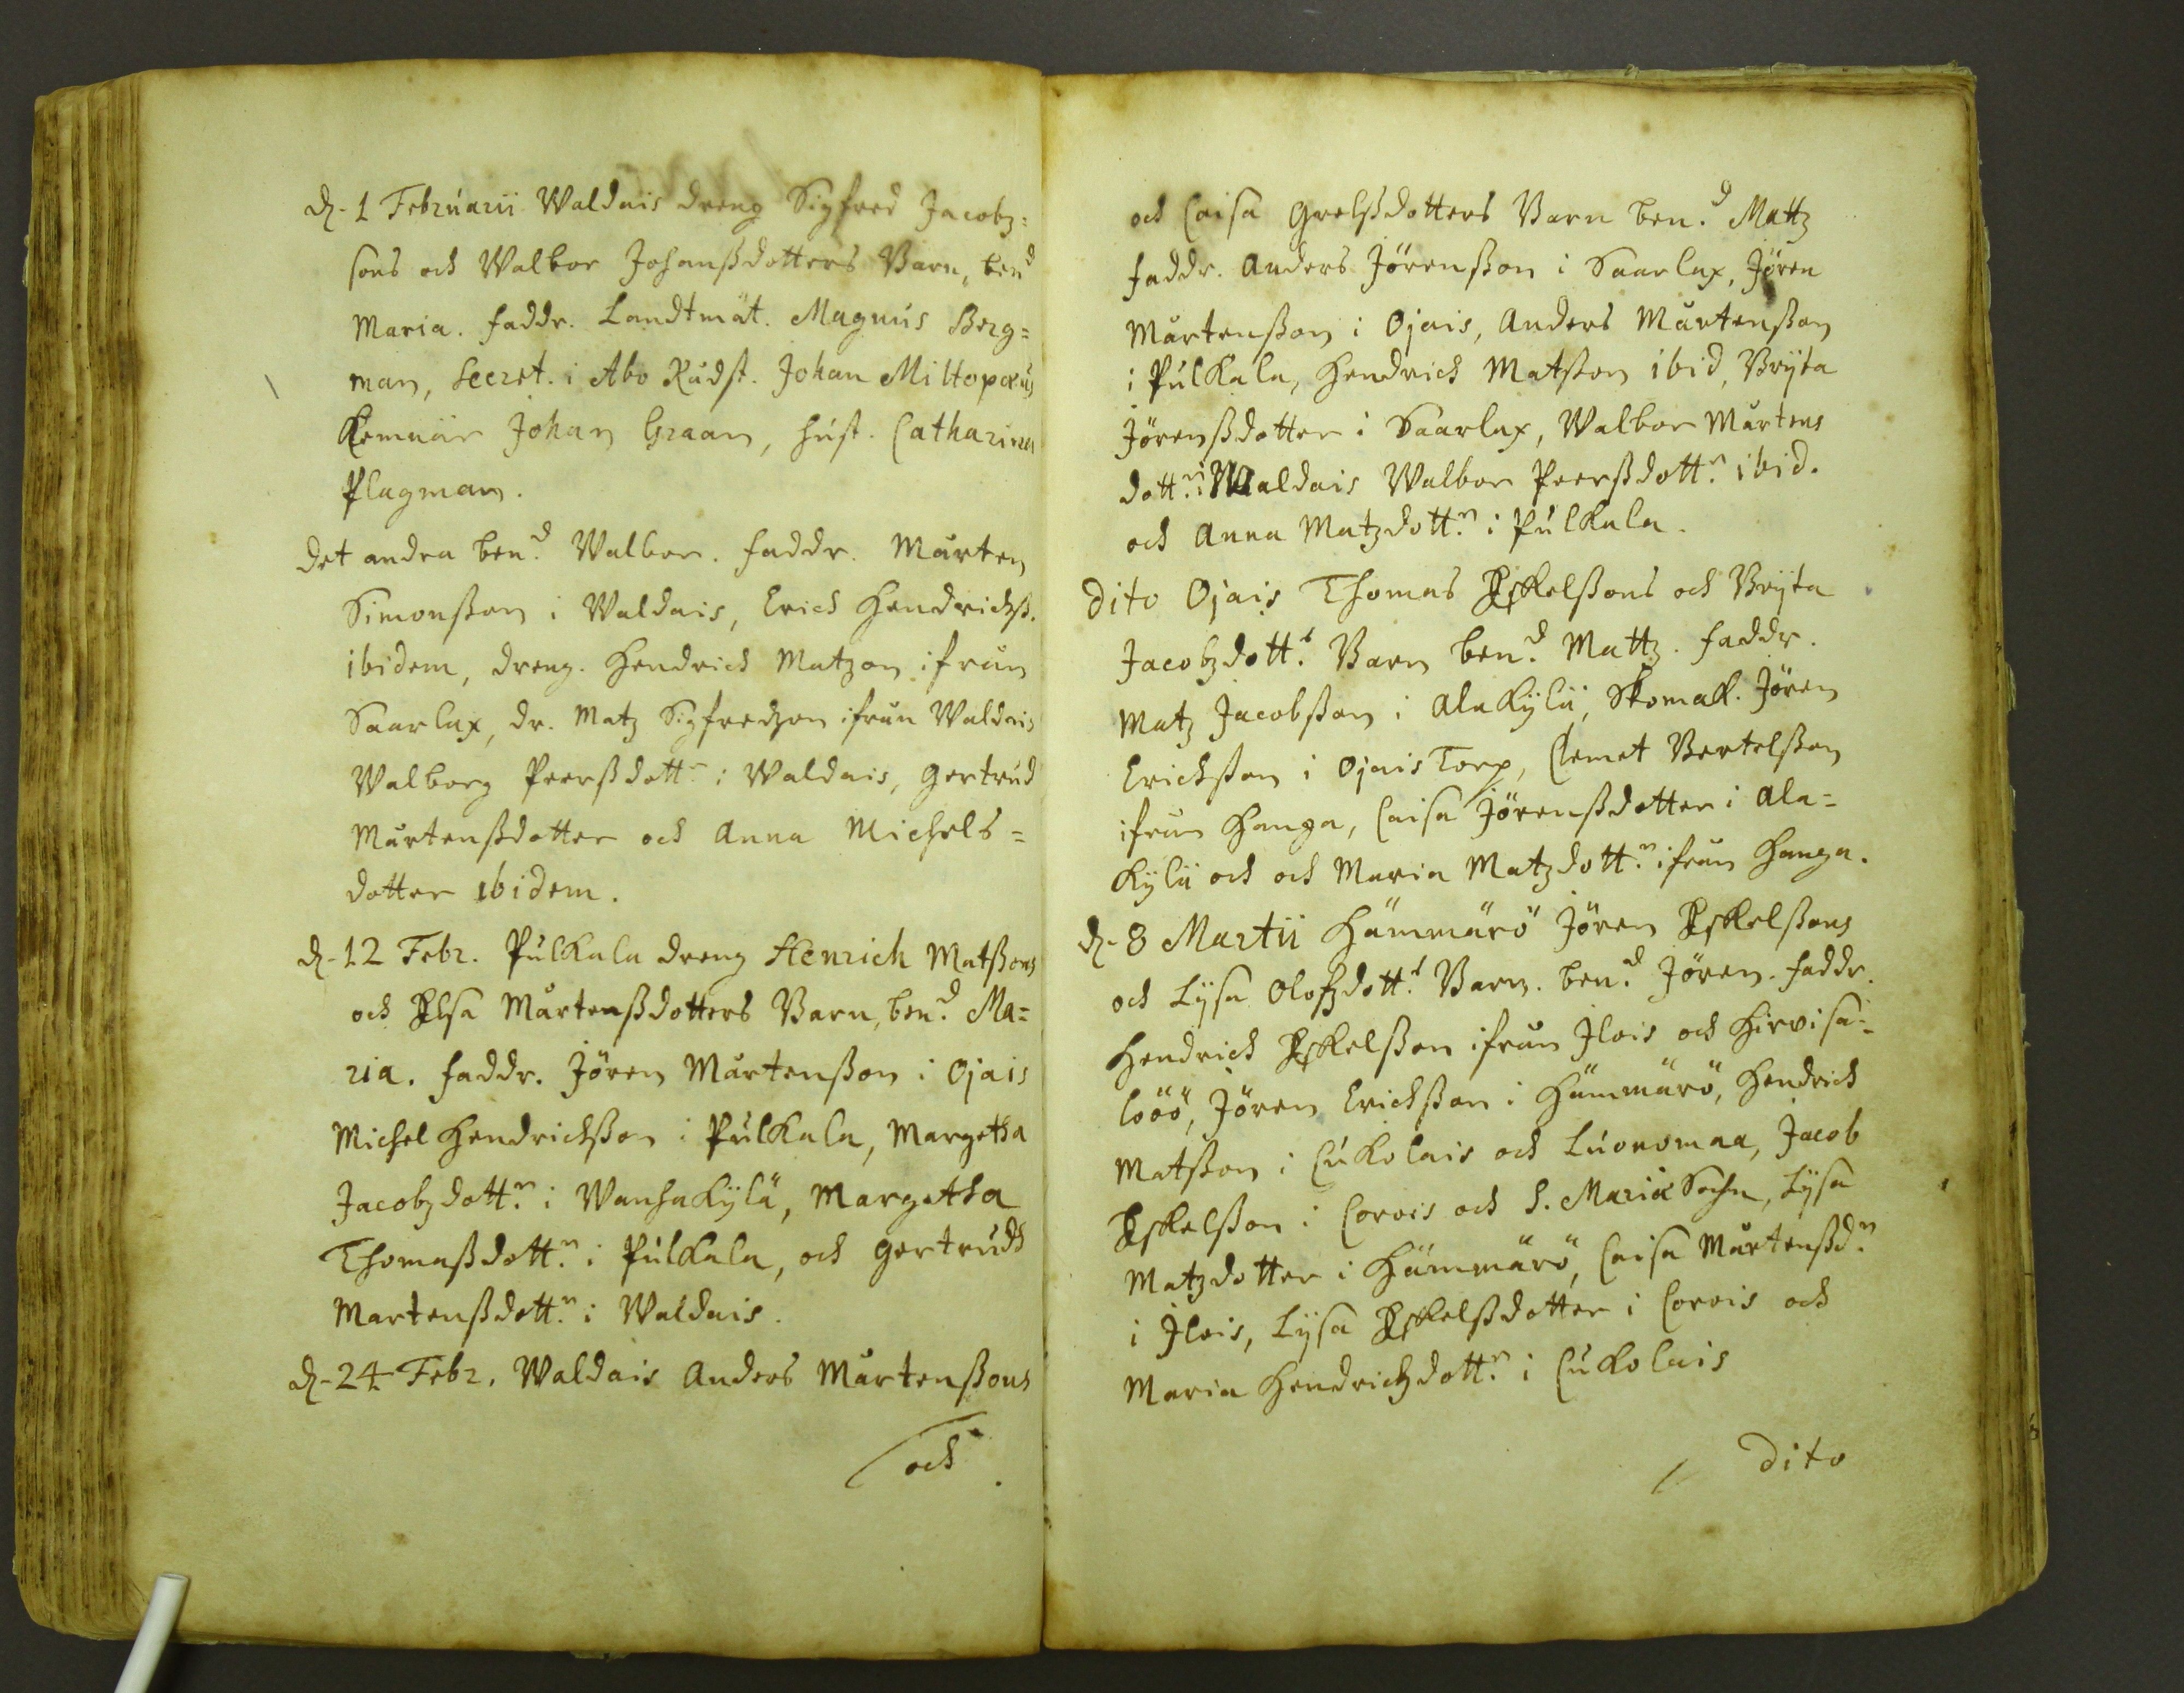 d. 1 Februarii Waldais dreng Sigfred Jacobz=
sons och Walbor Johanßdotters Barn, bend
Maria. faddr. Landtmät. Magnus Berg=
man, Secret. i Abo Rådst. Johan Miltopæus
Kemnär Johan Graan, hust. Catharina
Plagman.
det andra ben.d Walbor. faddr. Mårten
Simonßon i Waldais, Erich Hendrichß.
ibidem, dreng. Hendrich Matzon ifrån
Saarlax, dr. Matz Sigfredzon ifrån Waldais
Walborg Peerßdott.r i Waldais, Gertrud
Mårtenßdotter och Anna Michels=
dotter ibidem.
d. 12 Febr. Pulkala dreng Henrich Matßons
och Elsa Mårtenßdotters Barn, ben.d Ma=
ria. faddr. Jören Mårtenßon i Ojais
Michel Hendrichßon i Pulkala, Margetha
Jacobzdott.r i Wanhakylä, Margetha
Thomaßdott.r i Pulkala, och Gertrudh
Martenßdott.r i Waldais.
d. 24 Febr. Waldais Anders Mårtenßons
och
och Caisa Grelßdotters Barn ben.d Mattz
faddr. Anders Jörenßon i Saarlax, Jören
Mårtenßon i Ojais, Anders Mårtenßon
i Pulkala, Hendrich Matßon ibid, Bryta
Jörenßdotter i Saarlax, Walbor Mårtens
dott.r i Waldais Walbor Peerßdott.r ibid.
och Anna Matzdott.r i Pulkala.
Dito Ojais Thomas Eskelßons och Bryta
Jacobzdott.s Barn ben.d Mattz. faddr.
Matz Jacobßon i Alakylä, Skomak. Jören
Erichßon i Ojais Torp, Clemet Bertelßon
ifrån Hanga, Caisa Jörenßdotter i Ala=
kylä och och Maria Matzdott.r ifrån Hanga.
d. 8 Martii Hämmärö Jören Eskelßons
och Lysa Olofzdott.s Barn. ben.d Jören. faddr.
Hendrich Eskelßon ifrån Ilois och Hirvisa=
loöö, Jören Erichßon i Hämmärö, Hendrich
Matßon i Cukolais och Luonomaa, Jacob
Eskelßon i Corois och S. Mariæ Sochn, Lysa
Matzdotter i Hämmärö, Caisa Mårtenßd.r
i Ilois, Lysa Eskelßdotter i Corois och
Maria Hendrichzdott.r i Cukolais
Dito